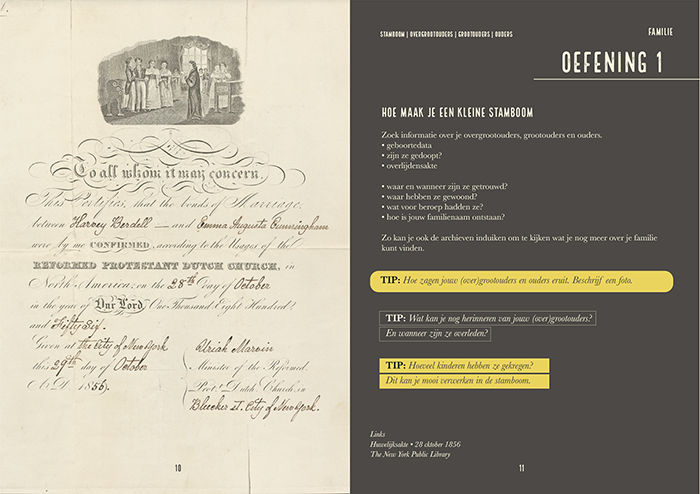 To all whom it may concern.
This Certifies, that the bonds of Marriage,
between Harvey Berdell — and Emma Augusta Cunningham
were by me CONFIRMED, according to the Usages of the
REFORMED PROTESTANT DUTCH CHURCH, in
North America; on the 28th Day of October
in the year of Our Lord One Thousand Eight Hundred
and Fifty Six.
Given at the City of New York
this 29th day of October
A.D. 1856).
Uriah Marvin
Minister of the Reformed
Prot. Dutch Church in
Bleecker St. City of New York.
10
STAMBOOM | OVERGROOTOUDERS | GROOTOUDERS | OUDERS
FAMILIE
OEFENING 1
HOE MAAK JE EEN KLEINE STAMBOOM
Zoek informatie over je overgrootouders, grootouders en ouders.
• geboortedata
• zijn ze gedoopt?
• overlijdensakte
• waar en wanneer zijn ze getrouwd?
• waar hebben ze gewoond?
• wat voor beroep hadden ze?
• hoe is jouw familienaam ontstaan?
Zo kan je ook de archieven induiken om te kijken wat je nog meer over je familie
kunt vinden.
TIP: Hoe zagen jouw (over)grootouders en ouders eruit. Beschrijf een foto.
TIP: Wat kan je nog herinneren van jouw (over)grootouders?
En wanneer zijn ze overleden?
TIP: Hoeveel kinderen hebben ze gekregen?
Dit kan je mooi verwerken in de stamboom.
Links
Huwelijksakte • 28 oktober 1856
The New York Public Library
11